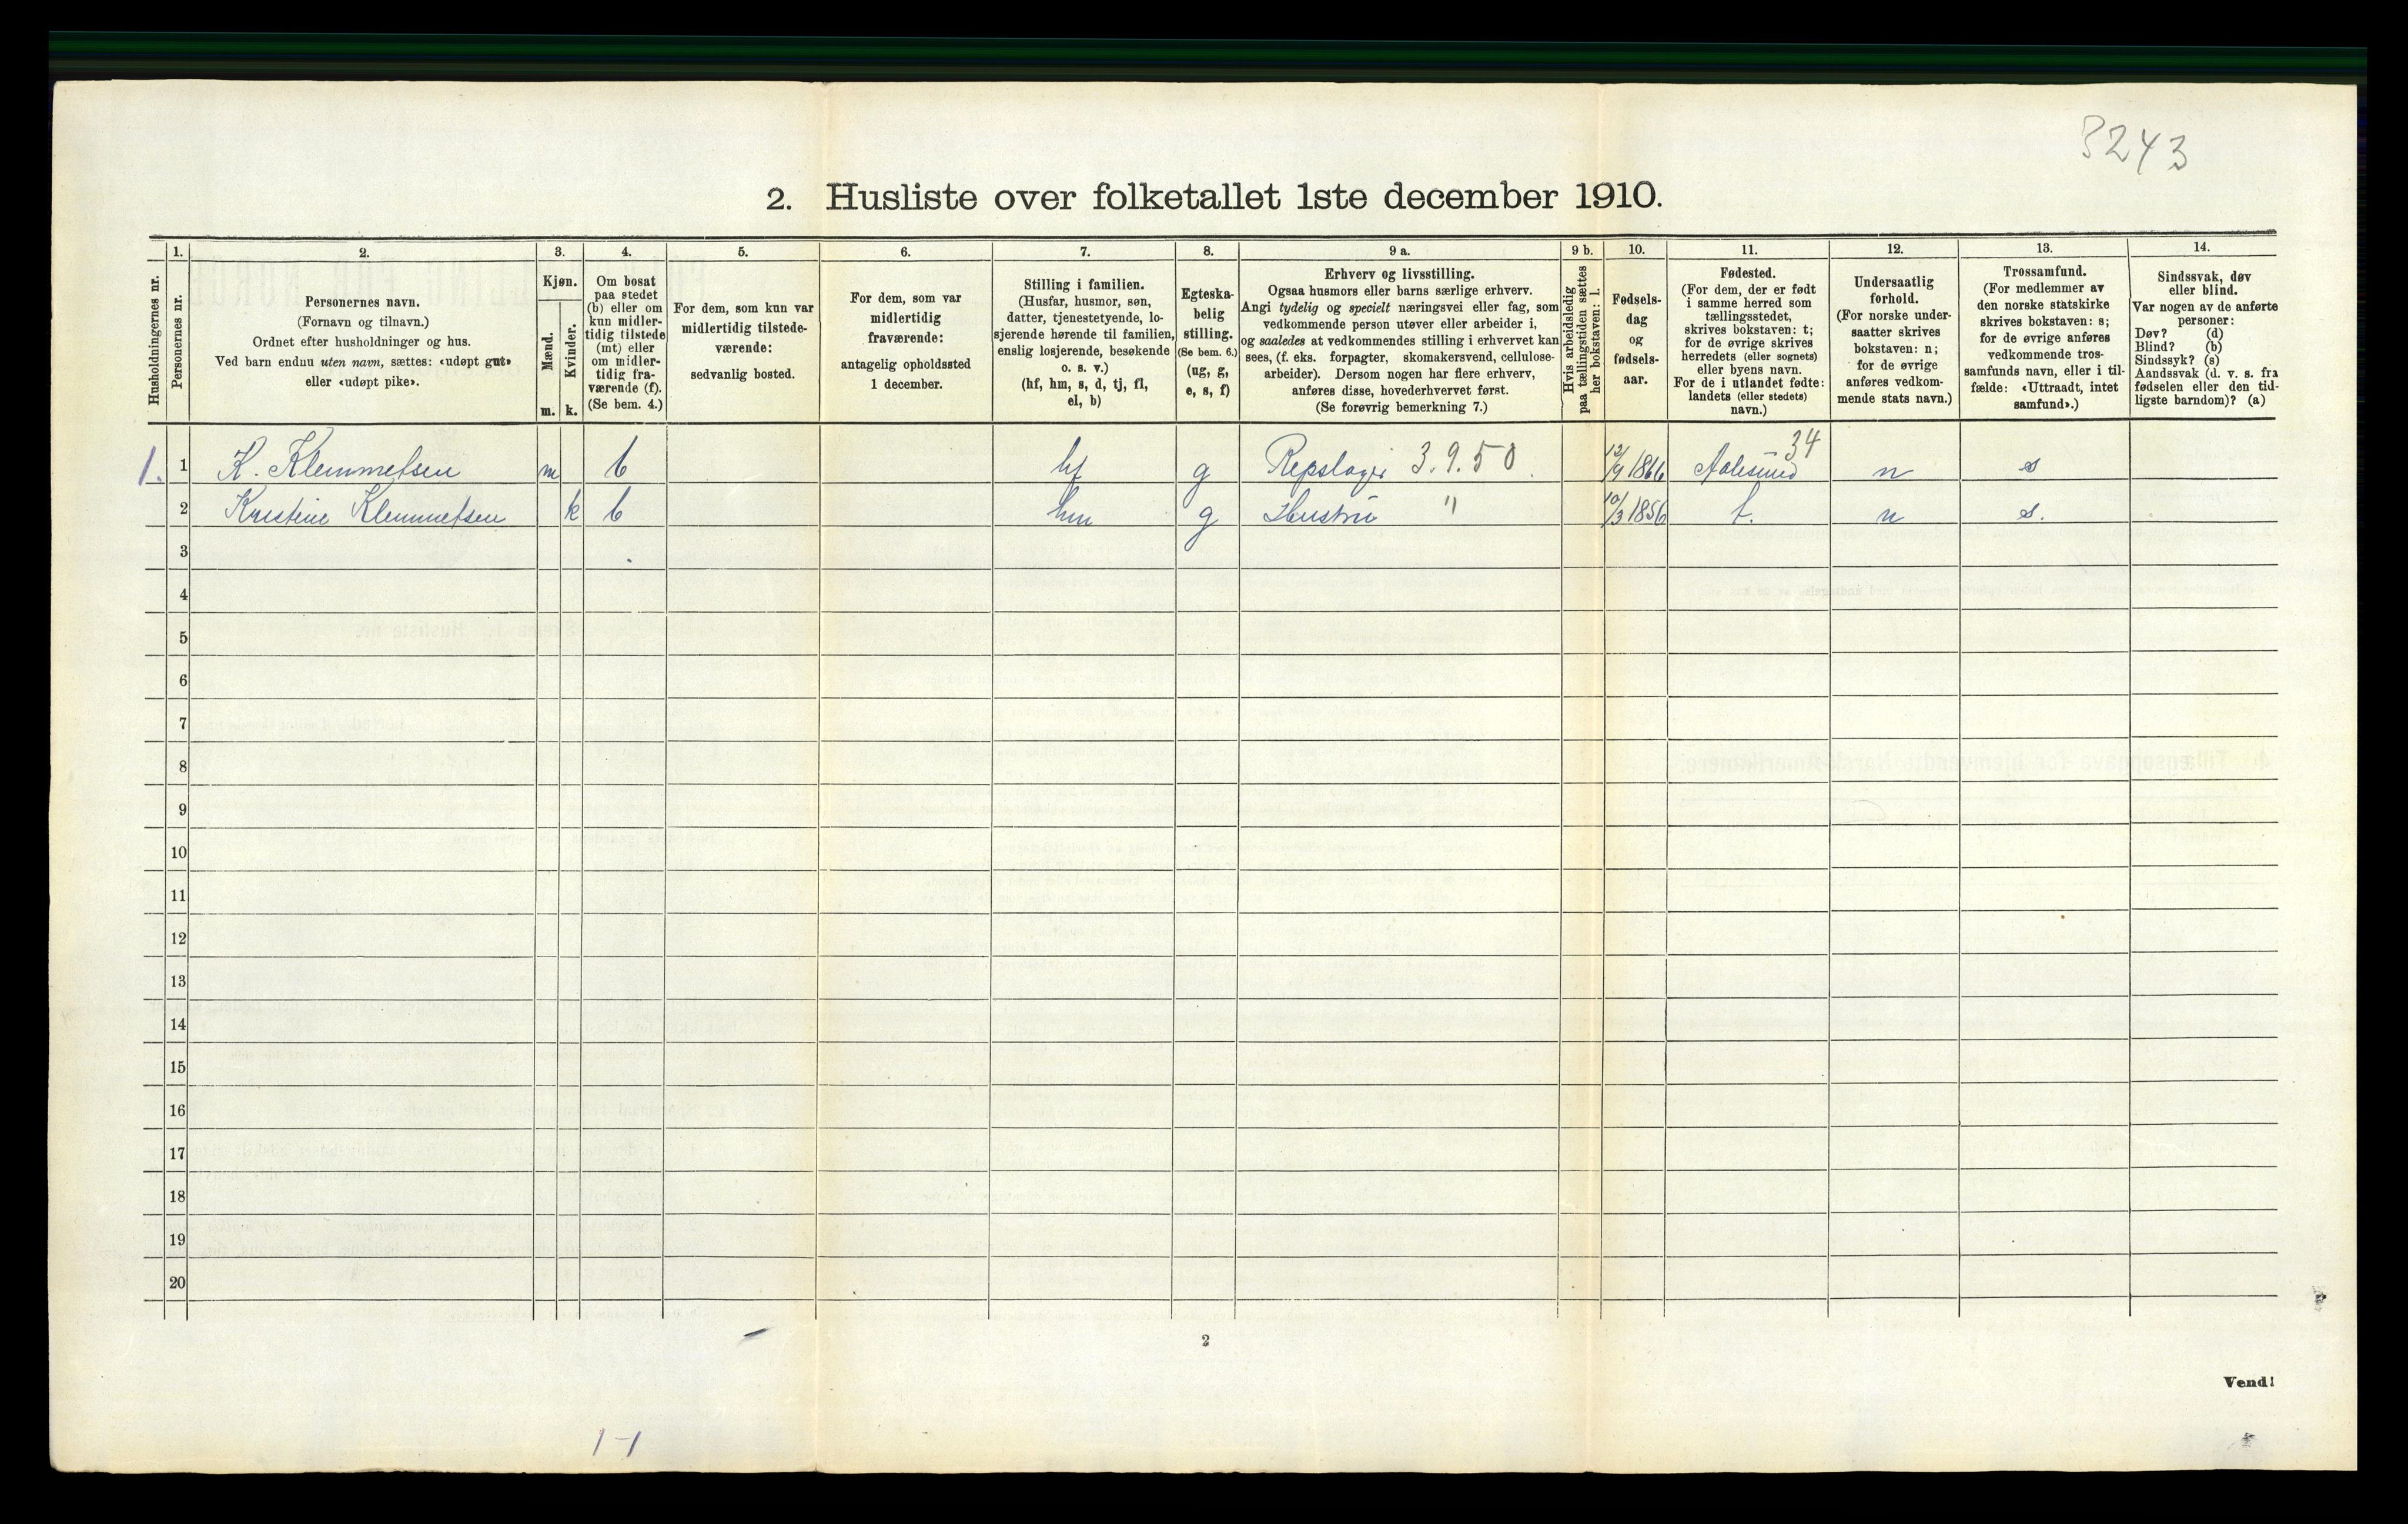 3243
2. Husliste over folketallet 1ste december 1910.
Husholdningernes nr.
1.
Personernes nr.
2.
Personernes navn.
(Fornavn og tilnavn.)
Ordnet efter husholdninger og hus.
Ved barn endnu uten navn, sættes: «udøpt gut»
eller «udøpt pike».
3.
Kjøn.
Mænd.
m.
Kvinder.
k.
4.
Om bosat
paa stedet
(b) eller om
kun midler-
tidig tilstede
(mt) eller
om midler-
tidig fra-
værende (f).
(Se bem. 4.)
5.
For dem, som kun var
midlertidig tilstede-
værende:
sedvanlig bosted.
6.
For dem, som var
midlertidig
fraværende:
antagelig opholdssted
1 december.
7.
Stilling i familien.
(Husfar, husmor, søn,
datter, tjenestetyende, lo-
sjerende hørende til familien,
enslig losjerende, besøkende
o. s. v.)
(hf, hm, s, d, tj, fl,
el, b)
8.
Egteska-
belig
stilling.
(Se bem. 6.)
(ug, g,
e, s, f)
9 a.
Erhverv og livsstilling.
Ogsaa husmors eller barns særlige erhverv.
Angi tydelig og specielt næringsvei eller fag, som
vedkommende person utøver eller arbeider i,
og saaledes at vedkommendes stilling i erhvervet kan
sees, (f. eks. forpagter, skomakersvend, cellulose-
arbeider). Dersom nogen har flere erhverv,
anføres disse, hovederhvervet først.
(Se forøvrig bemerkning 7.)
9 b.
Hvis arbeidsledig
paa tællingstiden sættes
her bokstaven: l.
10.
Fødsels-
dag
og
fødsels-
aar.
11.
Fødested.
(For dem, der er født
i samme herred som
tællingsstedet,
skrives bokstaven: t;
for de øvrige skrives
herredets (eller sognets)
eller byens navn.
For de i utlandet fødte:
landets (eller stedets)
navn.)
12.
Undersaatlig
forhold.
(For norske under-
saatter skrives
bokstaven: n;
for de øvrige
anføres vedkom-
mende stats navn.)
13.
Trossamfund.
(For medlemmer av
den norske statskirke
skrives bokstaven: s;
for de øvrige anføres
vedkommende tros-
samfunds navn, eller i til-
fælde: «Uttraadt, intet
samfund».)
14.
Sindssvak, døv
eller blind.
Var nogen av de anførte
personer:
Døv? (d)
Blind? (b)
Sindssyk? (s)
Aandssvak (d. v. s. fra
fødselen eller den tid-
ligste barndom)? (a)
34
1. 1 K. Klemmetsen m b hf g Repslager 3.9.50. 12/9 1866 Aalesund n s
2 Kristine Klemmetsen k b hm g Hustru " 10/3 1856 t. n s.
3
4
5
6
7
8
9
10
11
12
13
14
15
16
17
18
19
20
2
Vend!
1-1